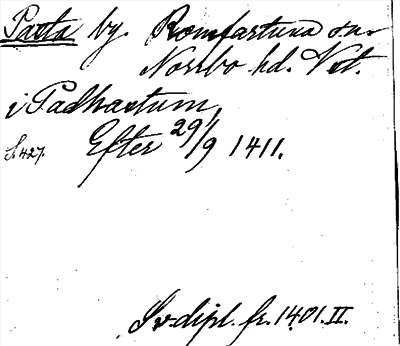 Patta by. Romfartuna sn.
Norrbo hd. Vst.
i Padhastum
S. 427. Efter 29/9 1411.
Sv. dipl. fr. 1401. II.